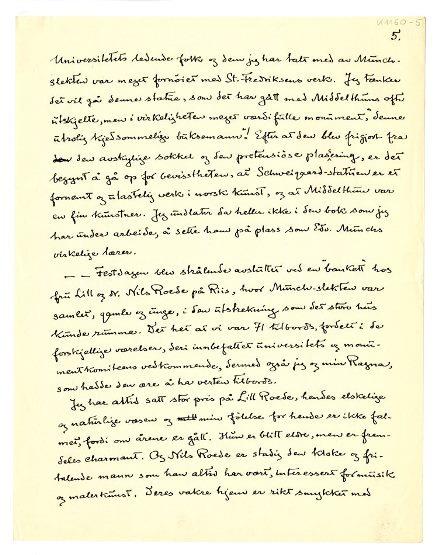 K1160-5
5.
Universitetets ledende folk og dem jeg har talt med av Munch-
slekten var meget fornøiet med St. Fredriksens verk. Jeg tænker
det vil gå denne statue, som det har gått med Middelthuns ofte
utskjelte, men i virkeligheten meget værdifulle monument, "denne
utrolig kjedsommelige buksemann"! Efter at den blev frigjort fra
den avskylige sokkel og den pretensiöse plasering, er det
begynt å gå op for bevisstheten, at Schweigaard-statuen er et
fornemt og ulastelig verk i norsk kunst, og at Middelthun var
en fin kunstner. Jeg undlater da heller ikke i den bok som jeg
har under arbeide, å sette ham på plass som Edv. Munchs
virkelige lærer.
— — Festdagen blev strålende avsluttet ved en "bankett" hos
fru Lill og dr. Nils Roede på Riis, hvor Munch-slekten var
samlet, gamle og unge, i den utstrekning som det store hus
kunde rumme. Det het at vi var 71 tilbords, fordelt i de
forskjellige værelser, deri innbefattet universitets og monu-
mentkomiteens vedkommende, dermed også jeg og min Ragna,
som hadde den ære å ha verten tilbords.
Jeg har altid satt stor pris på Lill Roede, hendes elskelige
og naturlige væsen og min følelse for hende er ikke fal-
met, fordi om årene er gått. Hun er blitt eldre, men er frem-
deles charmant. Og Nils Roede er stadig den kloke og fri-
talende mann som han altid har vært, interessert for musik
og malerkunst. Deres vakre hjem er rikt smykket med